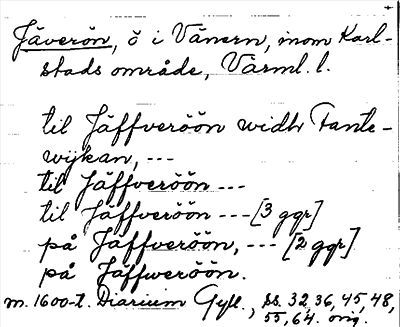 Jäverön, ö i Vänern, inom Karl-
stads område, Värml. l.
til Jäffveröön widh Tante-
wijkan, ---
til Jäffveröön ---
til Jäffveröön --- [3 ggr]
på Jäffveröön, --- [2 ggr]
på Jäffweröön.
m. 1600-t. Diarium Gyll., ss. 32, 36, 45, 48,
55, 64. orig.